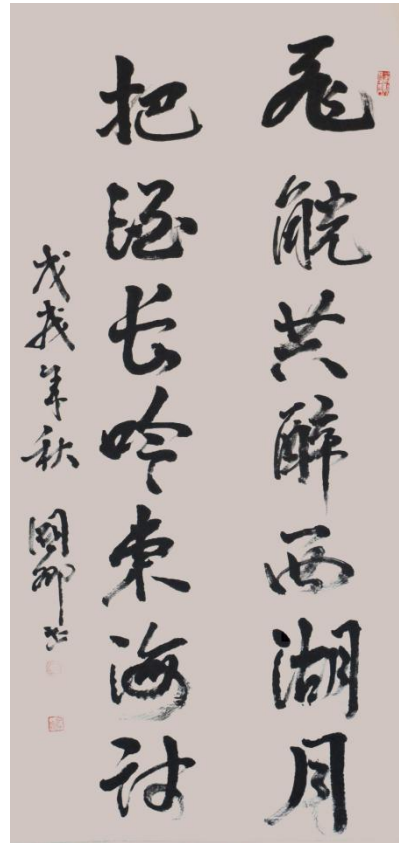 飛觥共醉西湖月
把酒长吟東海诗
戊戌年秋 國卿书